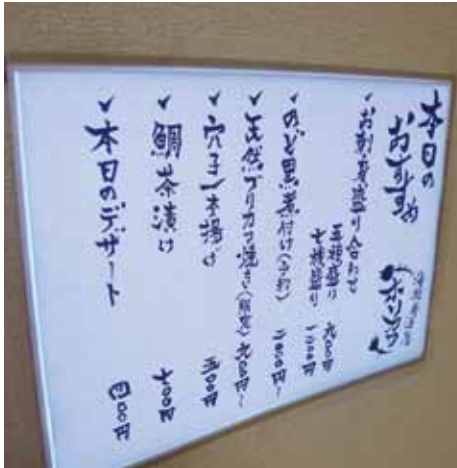 本日の
おすすめ
海鮮居酒屋
✓お刺身盛り合わせ
五種盛り 九〇〇円
七種盛り 一二〇〇円
✓のど黒煮付け(予約) 二〇〇〇円〜
✓天然ブリカマ焼き(限定) 九〇〇円〜
✓穴子一本揚げ 三〇〇円
✓鯛茶漬け 七〇〇円
✓本日のデザート 四〇〇円